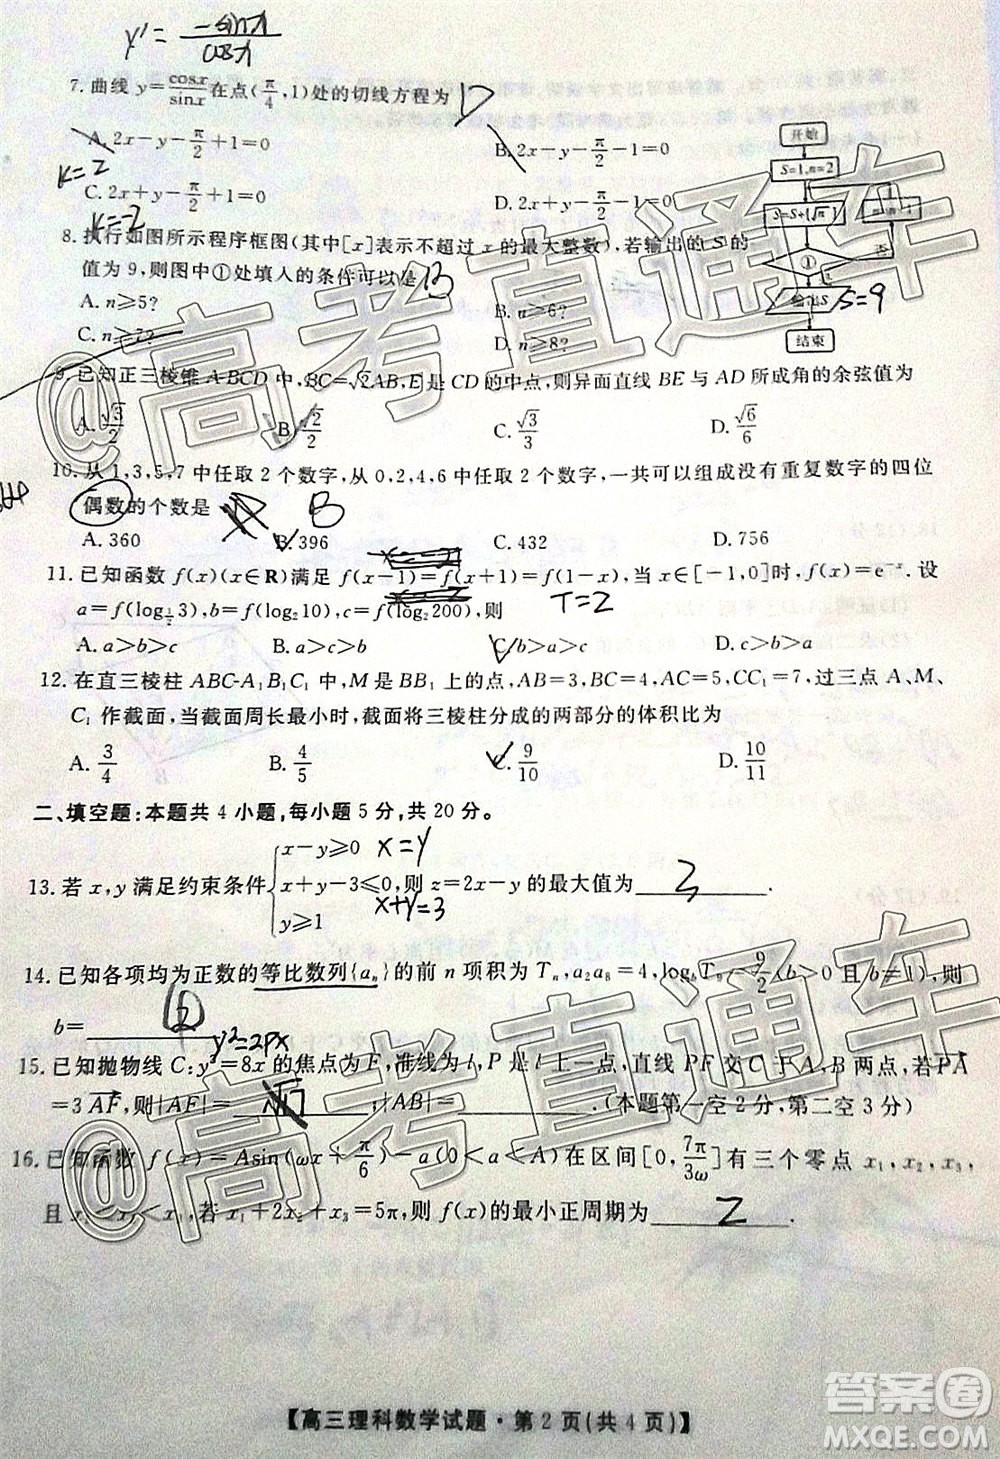 y' = -sinx / cosx
7. 曲线 y=cosx/sinx 在点(π/4,1)处的切线方程为 D
A. 2x-y-π/2+1=0 B. 2x-y-π/2-1=0
K=2
C. 2x+y-π/2+1=0 D. 2x+y-π/2-1=0
K=-2
8. 执行如图所示程序框图(其中[x]表示不超过 x 的最大整数),若输出的 S 的
值为 9,则图中①处填入的条件可以是 B
A. n≥5? B. n≥6?
C. n≥7? D. n≥8?
开始
S=1,n=2
S=S+[√n]
n=n+1
①
否
输出S
S=9
结束
9. 已知正三棱锥 A-BCD 中,BC=√2AB,E 是 CD 的中点,则异面直线 BE 与 AD 所成角的余弦值为
A. √3/2 B. √2/2 C. √3/3 D. √6/6
10. 从 1,3,5,7 中任取 2 个数字,从 0,2,4,6 中任取 2 个数字,一共可以组成没有重复数字的四位
偶数的个数是 B
A. 360 B. 396 C. 432 D. 756
11. 已知函数 f(x)(x∈R)满足 f(x-1)=f(x+1)=f(1-x),当 x∈[-1,0]时,f(x)=e⁻ˣ. 设
a=f(log½3),b=f(log₂10),c=f(log₂200),则 T=2
A. a>b>c B. a>c>b C. b>a>c D. c>b>a
12. 在直三棱柱 ABC-A₁B₁C₁ 中,M 是 BB₁ 上的点,AB=3,BC=4,AC=5,CC₁=7,过三点 A、M、
C₁ 作截面,当截面周长最小时,截面将三棱柱分成的两部分的体积比为
A. 3/4 B. 4/5 C. 9/10 D. 10/11
二、填空题:本题共 4 小题,每小题 5 分,共 20 分。
13. 若 x,y 满足约束条件{x-y≥0 x+y-3≤0, y≥1 则 z=2x-y 的最大值为 3
x=y
x+y=3
14. 已知各项均为正数的等比数列{aₙ}的前 n 项积为 Tₙ,a₂a₈=4,log_b T₉=9/2(b>0 且 b≠1),则
b= 2
y²=2px
15. 已知抛物线 C:y²=8x 的焦点为 F,准线为 l,P 是 l 上一点,直线 PF 交 C 于 A,B 两点,若PA
=3AF,则|AF|= ;|AB|= .(本题第一空 2 分,第二空 3 分)
16. 已知函数 f(x)=Asin(ωx+π/6)-a(0<a<A)在区间[0,7π/3ω]有三个零点 x₁,x₂,x₃,
且 x₁<x₂<x₃,若 x₁+2x₂+x₃=5π,则 f(x)的最小正周期为 2 .
【高三理科数学试题·第 2 页(共 4 页)】
@高考直通车
@高考直通车
答案卷
MXQE.COM